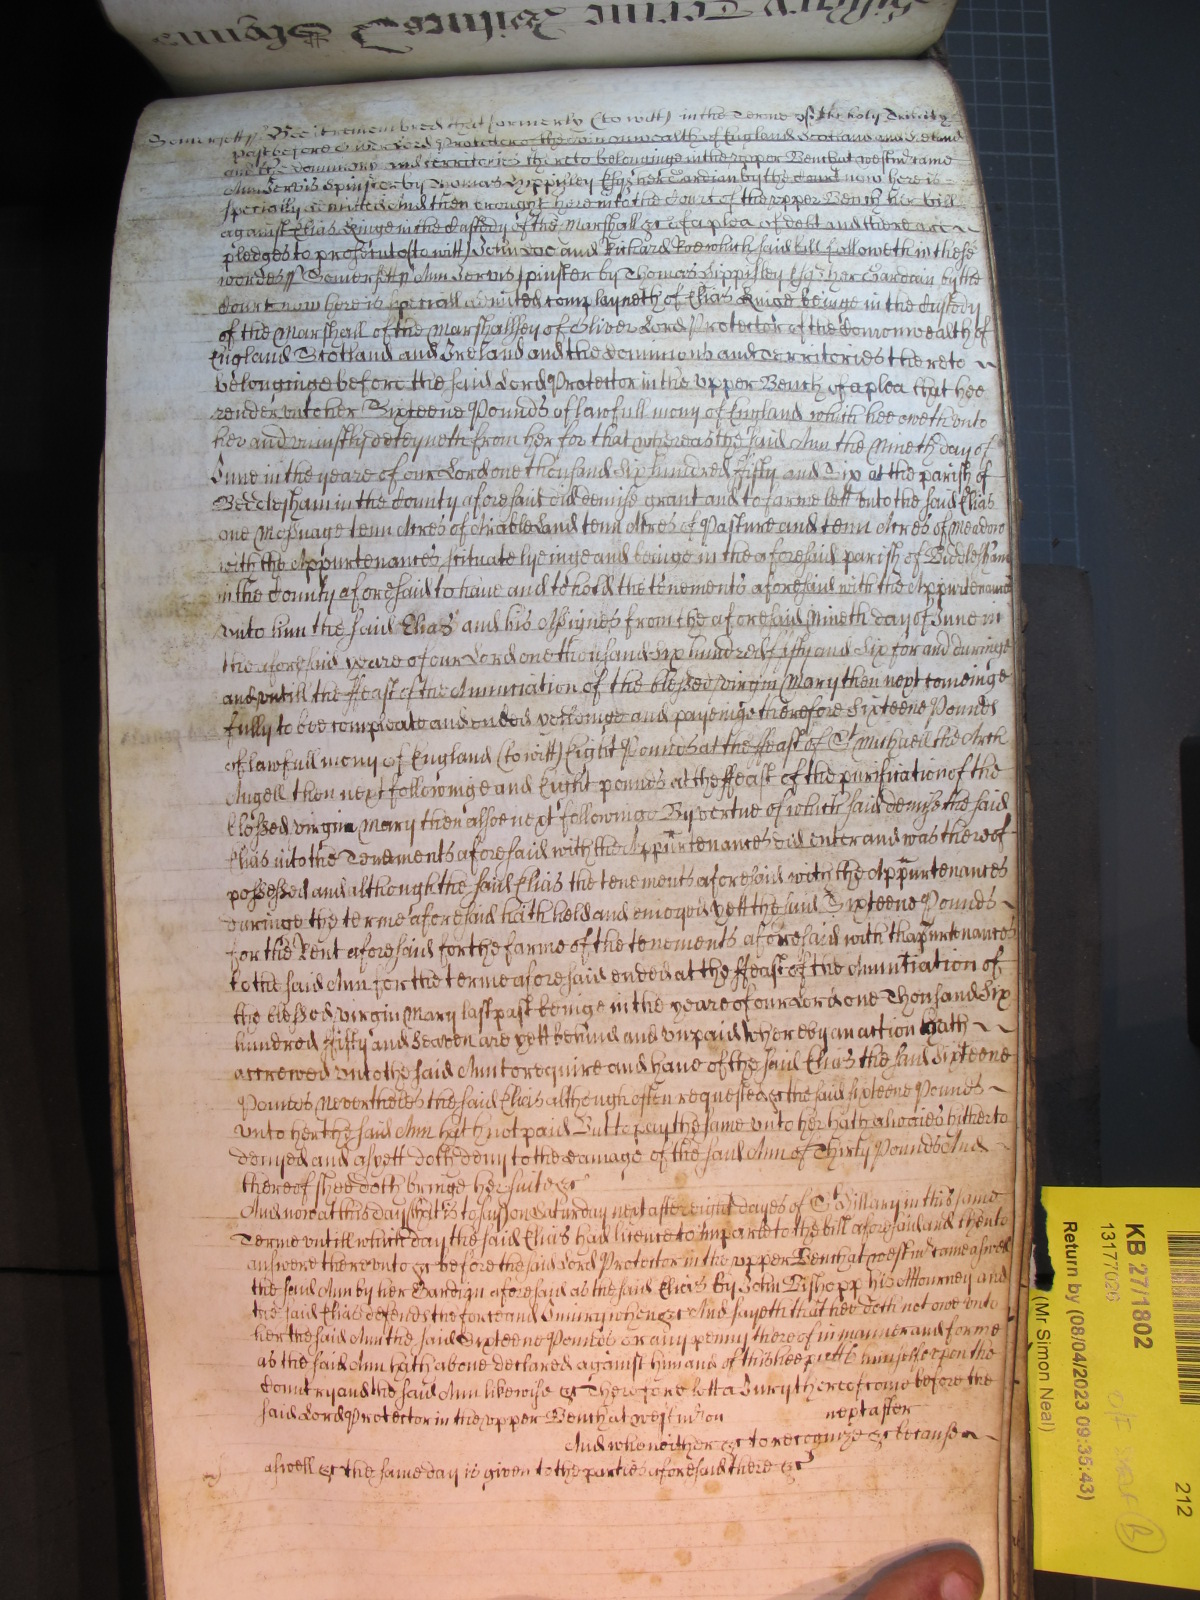 Hillary Terme Witnes Glynne
Somersett// Bee it remembred that formerly (to witt) in the Terme of the holy Trinity
past before Oliver Lord Protector of the Comonwealth of England Scotland and Ireland
and the Dominions and territories thereto belonginge in the upper Bench at Westmr came
Ann Jervis spinster by Thomas Hippisley Esqr her Gardian by the Court now here is
specially admitted And then brought here into the Court of the upper Bench her bill
against Elias Kinge in the Custody of the Marshall &c of a plea of debt and there are
pledges to prosecute (to witt) John Doe and Richard Roe which said bill followeth in these
wordes // Somersett// Ann Jervis spinster by Thomas Hippisley Esqr her Gardian by the
Court now here is specially admitted complayneth of Elias Kinge beinge in the Custody
of the Marshall of the Marshallsey of Oliver Lord Protector of the Comonwealth of
England Scotland and Ireland and the dominions and Territories thereto
belonginge before the said Lord Protector in the upper Bench of a plea that hee
render unto her Sixteene Pounds of lawfull mony of England which hee oweth unto
her and uniustly deteyneth from her for that whereas the said Ann the Nineth day of
June in the yeare of our Lord one thousand Six hundred fifty and Six at the parish of
Bedlesham in the County aforesaid did demise grant and to farme lett unto the said Elias
one Messuage tenn Acres of Arable Land tenn Acres of Pasture and tenn Acres of Meadow
with the Appurtenances scituate lyeinge and beinge in the aforesaid parish of Biddlesham
in the County aforesaid to have and to hold the tenements aforesaid with the Appurtenances
unto him the said Elias and his Assignes from the aforesaid Nineth day of June in
the aforesaid yeare of our Lord one thousand Six hundred fifty and Six for and duringe
and untill the ffeast of the Anunciation of the blessed virgin Mary then next comeinge
fully to bee compleate and ended yeildinge and payeinge therefore Sixteene Pounds
of lawfull mony of England (to witt) Eight Pounds at the ffeast of St Michaell the Arch
Angell then next followinge and Eight pounds at the ffeast of the purification of the
blessed virgin Mary then alsoe next followinge By vertue of which said demise the said
Elias into the Tenements aforesaid with the Appurtenances did enter and was thereof
possessed and although the said Elias the tenements aforesaid with the Appurtenances
duringe the terme aforesaid hath held and enioyed yett the said Sixteene Pounds
for the Rent aforesaid for the farme of the tenements aforesaid with thapurtenances
to the said Ann for the terme aforesaid ended at the ffeast of the Anuntiation of
the blessed virgin Mary last past beinge in the yeare of our Lord one Thousand Six
hundred fifty and Seaven are yett behind and unpaid whereby an action hath
accrewed unto the said Ann to require and have of the said Elias the said Sixteene
Pounds Neverthelesse the said Elias although often requested &c the said sixteene Pounds
unto her the said Ann hath not paid But to pay the same unto her hath alwaies hitherto
denyed and as yett doth deny to the damage of the said Ann of Thirty Pounds And
thereof shee doth bringe her suite &c
And now at this day (that is to say) on Saturday next after eight dayes of St Hillary in this same
Terme untill which day the said Elias had licence to imparle to the bill aforesaid and then to
answere thereunto &c before the said Lord Protector in the upper Bench at Westmr came aswell
the said Ann by her Gardian aforesaid as the said Elias by John Bishopp his Attorney and
the said Elias defends the force and Iniury when &c And sayeth that hee doth not owe unto
her the said Ann the said Sixteene Pounds or any penny thereof in manner and forme
as the said Ann hath above declared against him and of this hee putts himselfe upon the
Country and the said Ann likewise &c Therefore lett a Jury thereof come before the
said Lord Protector in the upper Bench at Westmr on next after
And who neither &c to recognize &c because
aswell &c the same day is given to the parties aforesaid there &c
KB 27/1802
13177026
Return by (08/04/2023 09:35:43)
(Mr Simon Neal)
212